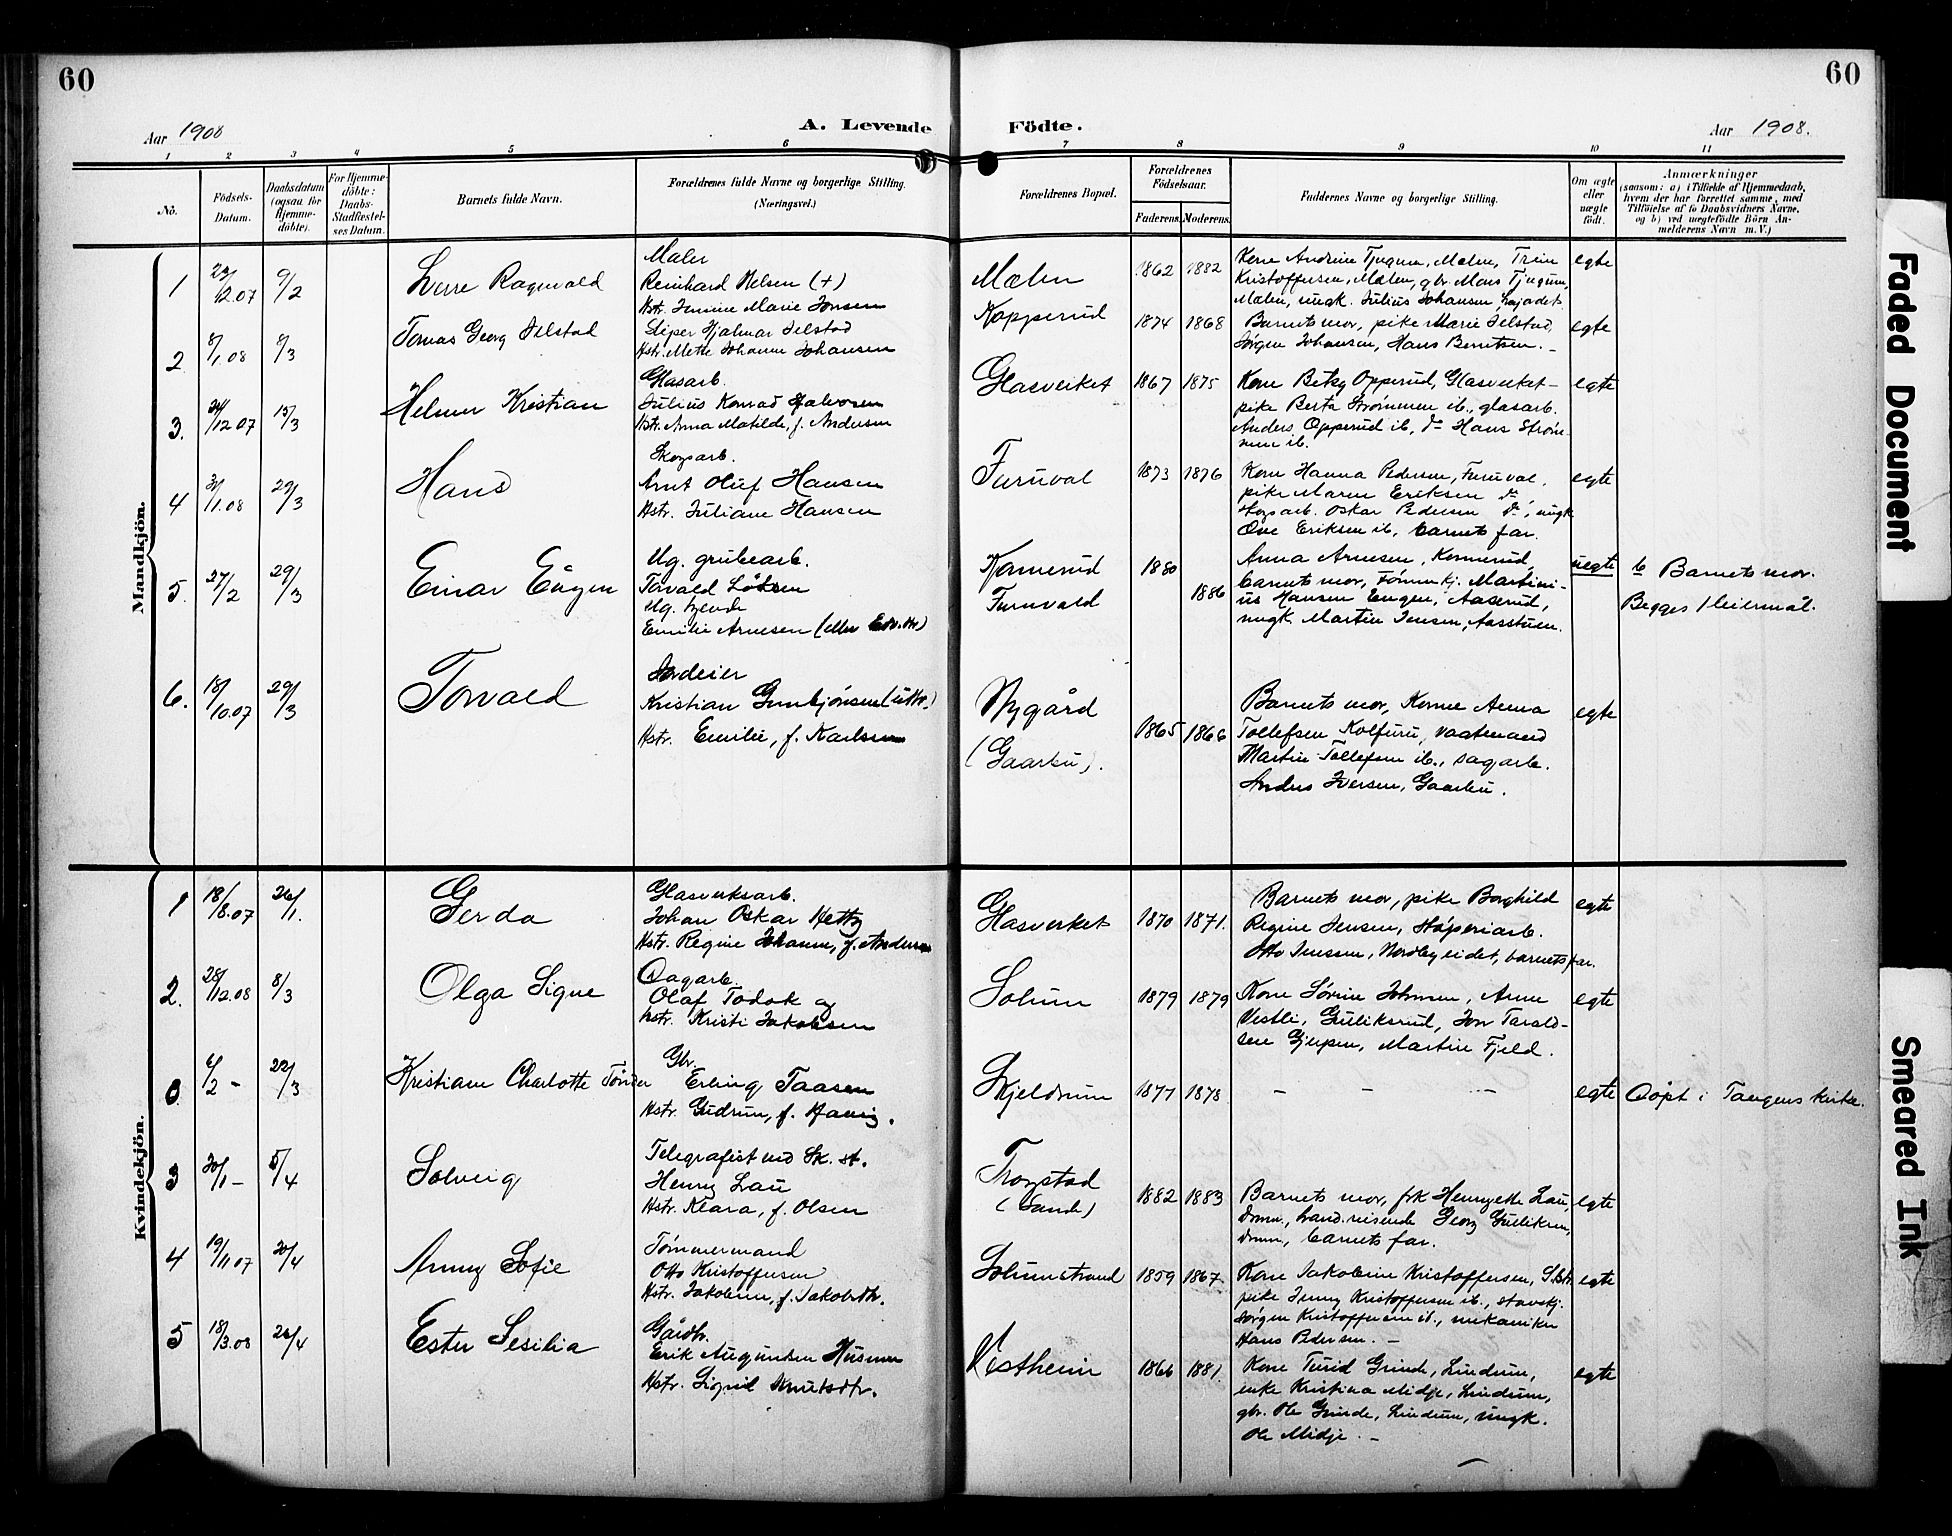 60
60
Aar 1908
A. Levende
Födte.
Aar 1908.
1 2 3 4 5 6 7 8 9 10 11
No.
Födsels-Datum.
Daabsdatum (ogsaa for Hjemme-döbte).
For Hjemme-döbte: Daabs-Stadfæstel-ses Datum.
Barnets fulde Navn.
Forældrenes fulde Navne og borgerlige Stilling. (Næringsvei.)
Forældrenes Bopæl.
Forældrenes Födselsaar.
Faderens. Moderens.
Faddernes Navne og borgerlige Stilling.
Om ægte eller uægte født.
Anmærkninger
(saasom: a) i Tilfælde af Hjemmedaab, hvem der har forrettet samme, med Tilföielse af to Daabsvidners Navne, og b) ved uægtefödte Börn An-melderens Navn m. V.)
Mandkjön.
1
12.07
9/2
Sverre Ragnvald
Maler
Reinhard Nelsen (+)
Hstr. Jensine Marie Jensen
Mælen
1862 1882
Kone Andrine Tjugum, Mælen, Trine
Kristoffersen, Mælen, gbr. Mons Tjugum,
Mælen, ungk. Julius Johansen
egte
2
8/1 08
8/3
Tomas Georg Jelstad
Sliper Hjalmar Jelstad
Hstr. Mette Johanne Johansen
Kopperud
1874 1868
Barnets mor, pike Marie Jelstad,
Jørgen Johansen, Hans Berntsen. -
egte
3.
12 07
15/3
Helmer Kristian
Glasarb.
Julius Konrad Halvorsen
Hstr. Anna Matilde, f. Andersen
Glasverket
1867 1875
Kone Betzy Opperud, Glasverket -
pike Berta Strømmen ib., glasarb.
Anders Opperud ib., do Hans Strøm-
men ib.
egte
4
1.08
29/3
Hans
Skogsarb.
Arnt Oluf Hansen
Hstr. Juliane Hansen
Furuval
1873 1876
Kone Hanna Pedersen, Furuval,
pike Maren Eriksen do,
skogsarb. Oskar Pedersen do, ungk
Ove Eriksen ib, barnets far.
egte
5.
27/2
29/3
Einar Eugen
Ug. grubearb.
Torvald
Ug. tjende
Emilie Arnesen
Konnerud
Furuvald
1880
1886
Anna Arnesen, Konnerud,
barnets mor, Martini-
us Hansen Engen, Aaserud,
ungk Martin Jensen, Aasstuen.
uegte
b Barnets mor.
Begges 1 leiermål.
6.
18/10.07
29/3
Torvald
Jordeier
Kristian Gunbjörnsen
Hstr. Emilie, f. Karlsen
Nygård
(Gaarbu).
1865 1866
Barnets mor, Konne Anna
Tollefsen Kolfuru,
Martin Tollefsen ib., sagarb.
Anders Iversen, Gaarbu.
egte
Kvindekjön.
1
18/8.07
26/1.
Gerda
Glasverksarb.
Johan Oskar Hettz
Hstr. Regine Johanne, f. Andersen
Glasverket
1870 1871.
Barnets mor, pike Borghild
Regine Jensen, Støperiarb.
Otto Jenssen, Nordbyeidet, barnets far.
egte
2.
28/12.08
8/3
Olga Signe
Dagarb.
Olaf Todok og
hstr. Kristi Jakobsen
Solum
1879 1879
Kone Sørine Johnsen, Anne
Vestli, Guliksrud, Jon Tarald-
sen Gjupen, Martin Fjeld.
egte
0.
6/2 -
22/3
Kristiane Charlotte Tönder
Gbr.
Erling Taasen
Hstr. Gudrun, f.
Skjeldrum
1877 1878
- - -
egte
Döpt i Tangens kirke.
3
30/1 -
5/4
Solveig
Telegrafist ved Sk. st.
Henry Lau
Hstr. Klara, f. Olsen
Trogstad
(Sande)
1882 1883
Barnets mor, frk Henryette Lau,
Dramn., hand.reisende Georg Gulliksen,
Dramn., barnets far.
egte
4
19/11 07
20/4
Anny Sofie
Tömmermand
Otto Kristoffersen
Hstr. Jakobine, f. Jakobsdtr.
Solumstrand
1859 1867
Kone Jakobine Kristoffersen, S.str.
pike Jenny Kristoffersen ib., stavskj.
Jørgen Kristoffersen ib., mekaniker
Hans Pedersen. -
egte
5
18/3.08
26/4
Ester Sesilia
Gårdbr.
Erik Augunsen Husmer
Hstr. Sigrid Knutsdtr.
Vestheim
1866 1881
Kone Turid Grinde, Lindum,
enke Kristina Midje, Lindum,
gbr. Ole Grinde, Lindum, ungk.
Ole Midje. -
egte
Faded Document
Smeared Ink